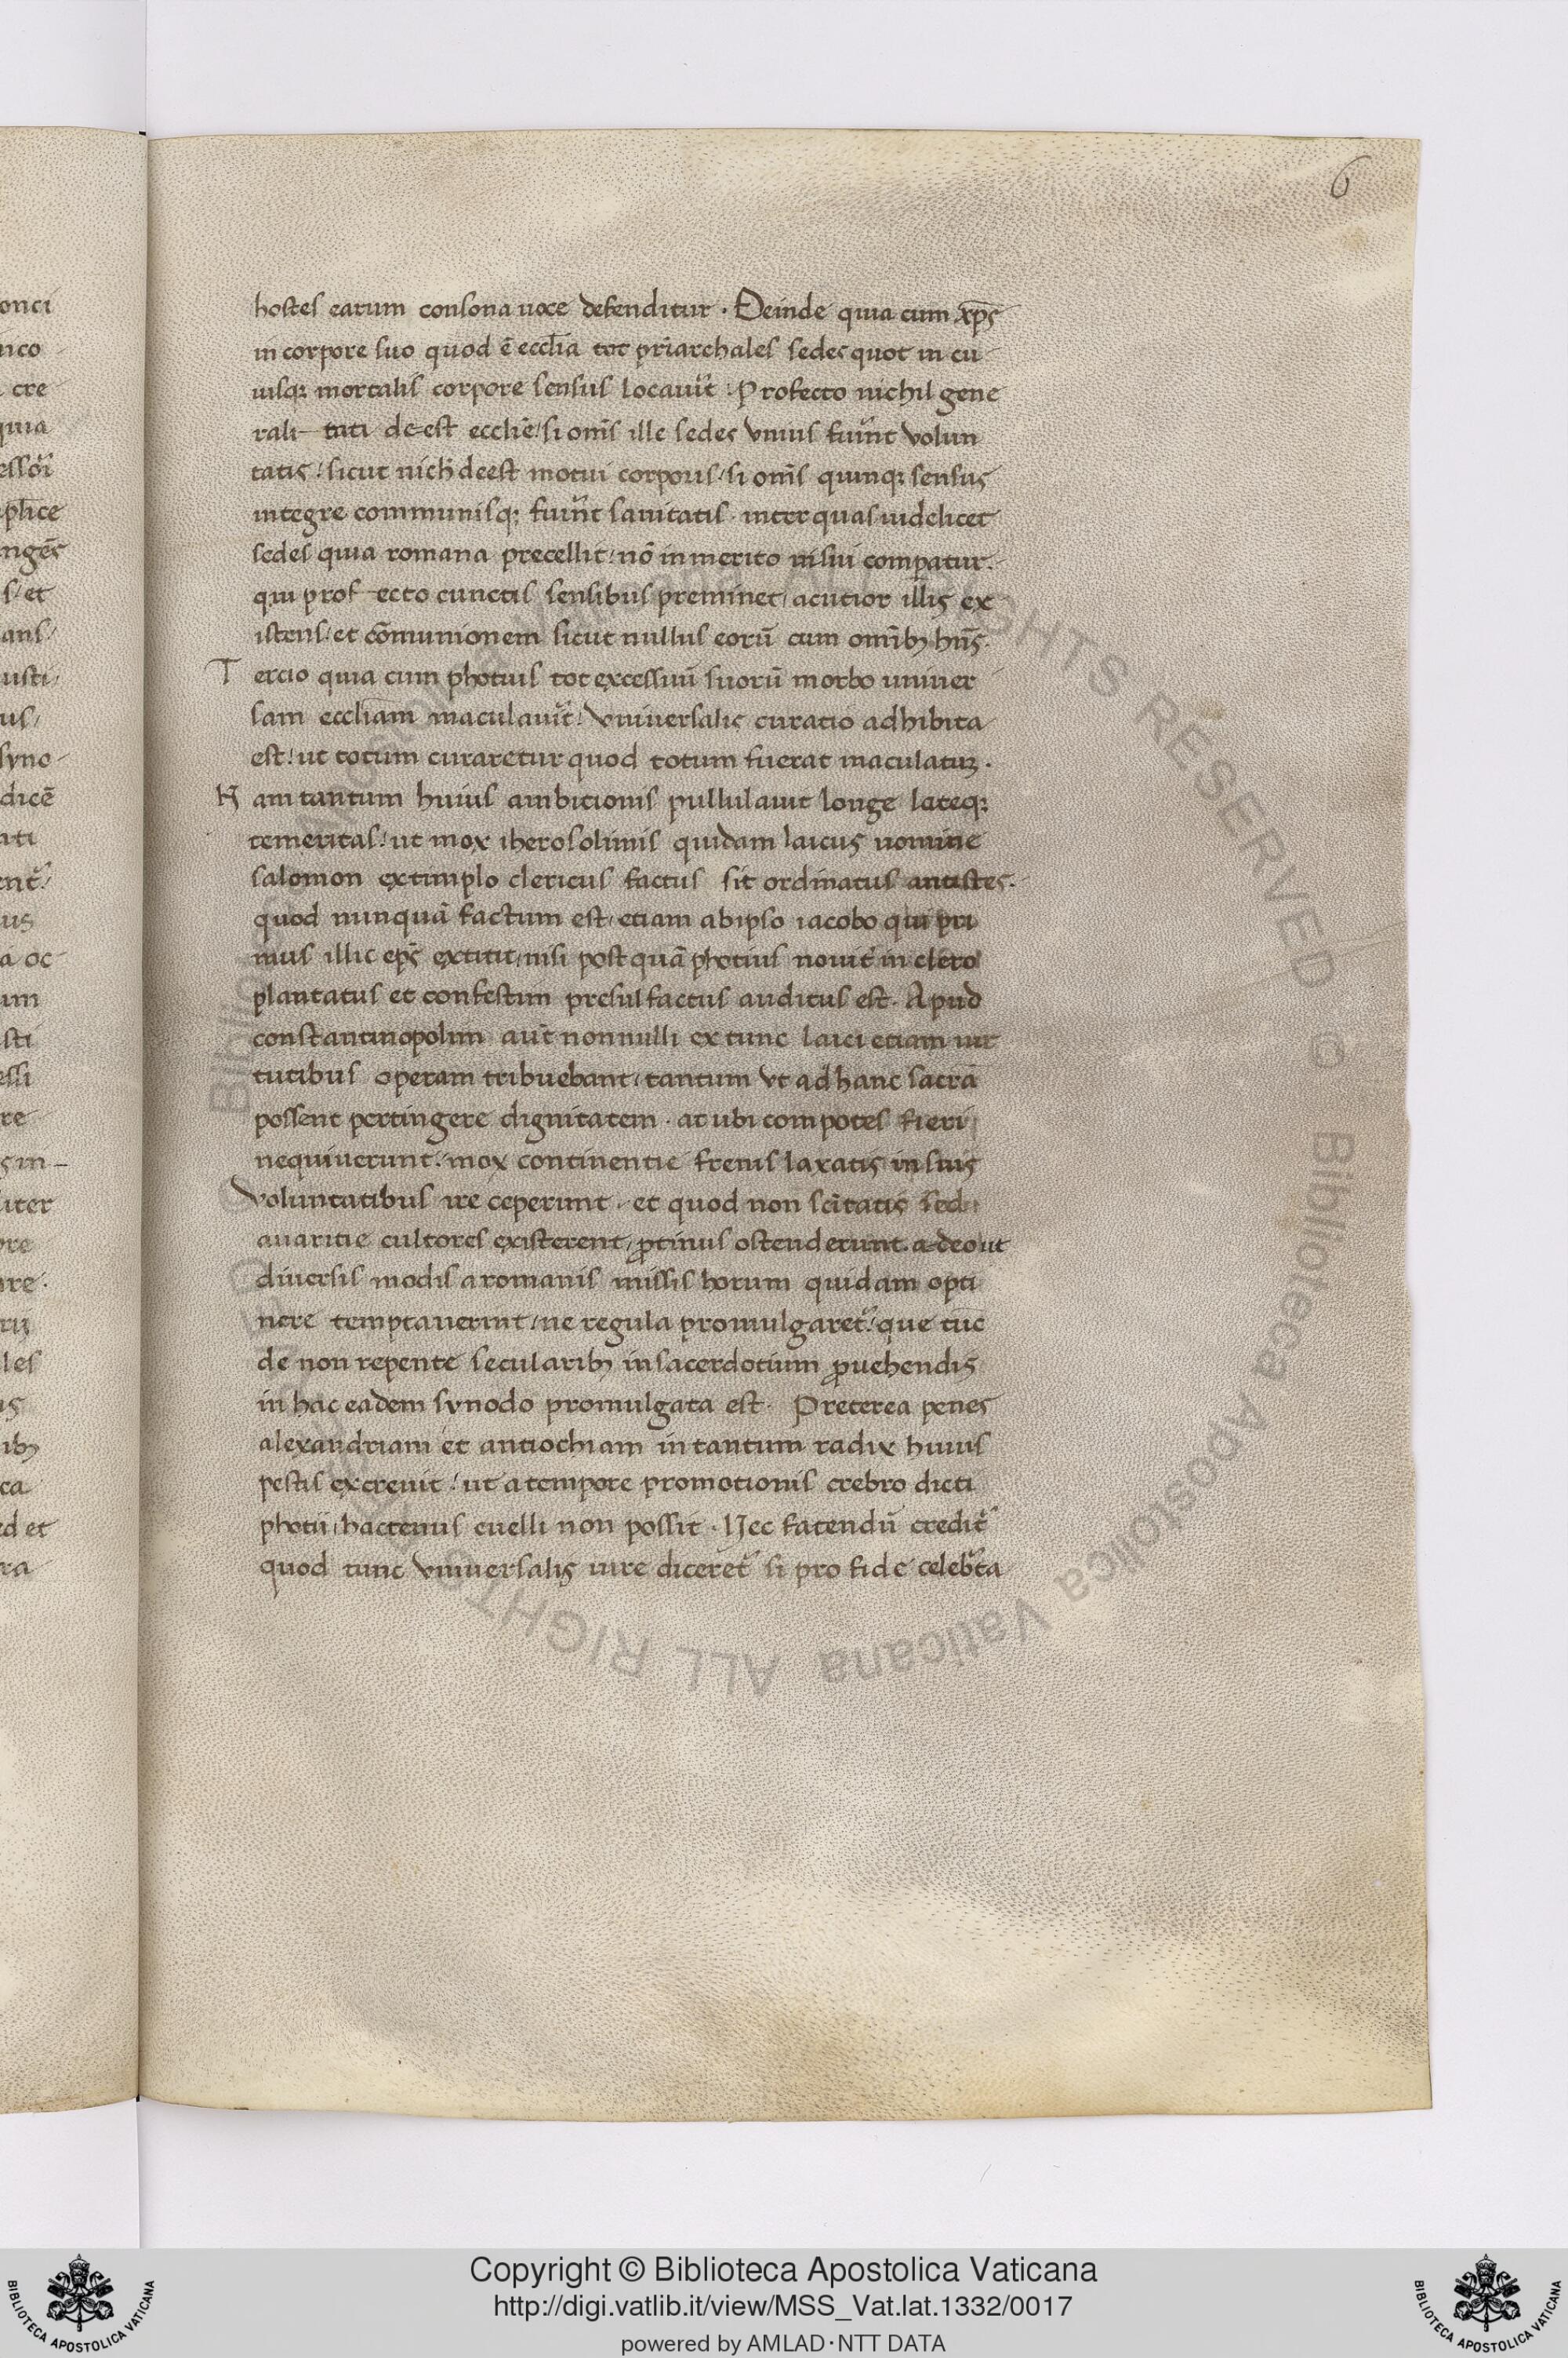 6
hostes earum consona uoce defenditur · Deinde quia cum xp̄s
in corpore suo quod ē eccl̄ia tot pr̄iarchales sedes quot in cu
iusq; mortalis corpore sensus locauer̄t : Profecto nichil gene
rali tati deest ecclīe / si om̄s ille sedes vnius fuer̄int volun
tatis / sicut nich̄ deest motui corporis / si om̄s quinq; sensus
integre communisq; fuer̄int sanitatis · inter quas uidelicet
sedes quia romana precellit / nō inmerito uisui comparatur ·
qui prof ecto cunctis sensibus preminet / acutior illis ex
istens / et cōmunionem sicut nullus eorū cum omīb; hn̄s ·
Tercio quia cum photius tot excessuū suorū morbo uniuer
sam eccliam maculauer̄t / vniuersalis curatio adhibita
est / ut totum curaretur quod totum fuerat maculatuȝ ·
Nam tantum huius ambitionis pullulauit longe lateq;
temeritas / ut mox iherosolimis quidam laicus nomine
salomon extimplo clericus factus sit ordinatus antistes ·
quod nunquā factum est / etiam ab ipso iacobo qui pri
mus illic ep̄s extitit / nisi postquā photius nouit̄ in clero
plantatus et confestim presul factus auditus est · Apud
constantinopolim aut̄ nonnulli ex tunc laici etiam uir
tutibus operam tribuebant / tantum vt ad hanc sacrā
possent pertingere dignitatem · at ubi compotes fieri
nequiuerunt / mox continentie frenis laxatis in suis
voluntatibus ire ceperunt · et quod non sc̄itatis sed
auaritie cultores existerent / p̄tinus ostenderunt · adeo ut
diuersis modis a romanis missis horum quidam opti
nere temptauerint / ne regula promulgaret̄ / que tūc
de non repente secularib; in sacerdotium p̄uehendis
in hac eadem synodo promulgata est · Preterea penes
alexandriam et antiochiam in tantum radix huius
pestis excreuit / ut a tempore promotionis crebro dicti
photii / hactenus euelli non possit · Nec fatendū credit̄
quod tunc vniuersalis iure diceret̄ si pro fide celebr̄ta
onci
nco
cre
quia
essor̄
plīce
ngēs
s / et
ans /
usti /
us /
syno
dicē
ati
ent̄ /
us
a oc
um
sti
essi
re
s in
iter
ore
are ·
rii
les
us
ib;
ca
ed et
ra
Biblioteca Apostolica Vaticana ALL RIGHTS RESERVED ©
Copyright © Biblioteca Apostolica Vaticana
http://digi.vatlib.it/view/MSS_Vat.lat.1332/0017
powered by AMLAD·NTT DATA
BIBLIOTECA APOSTOLICA VATICANA
BIBLIOTECA APOSTOLICA VATICANA